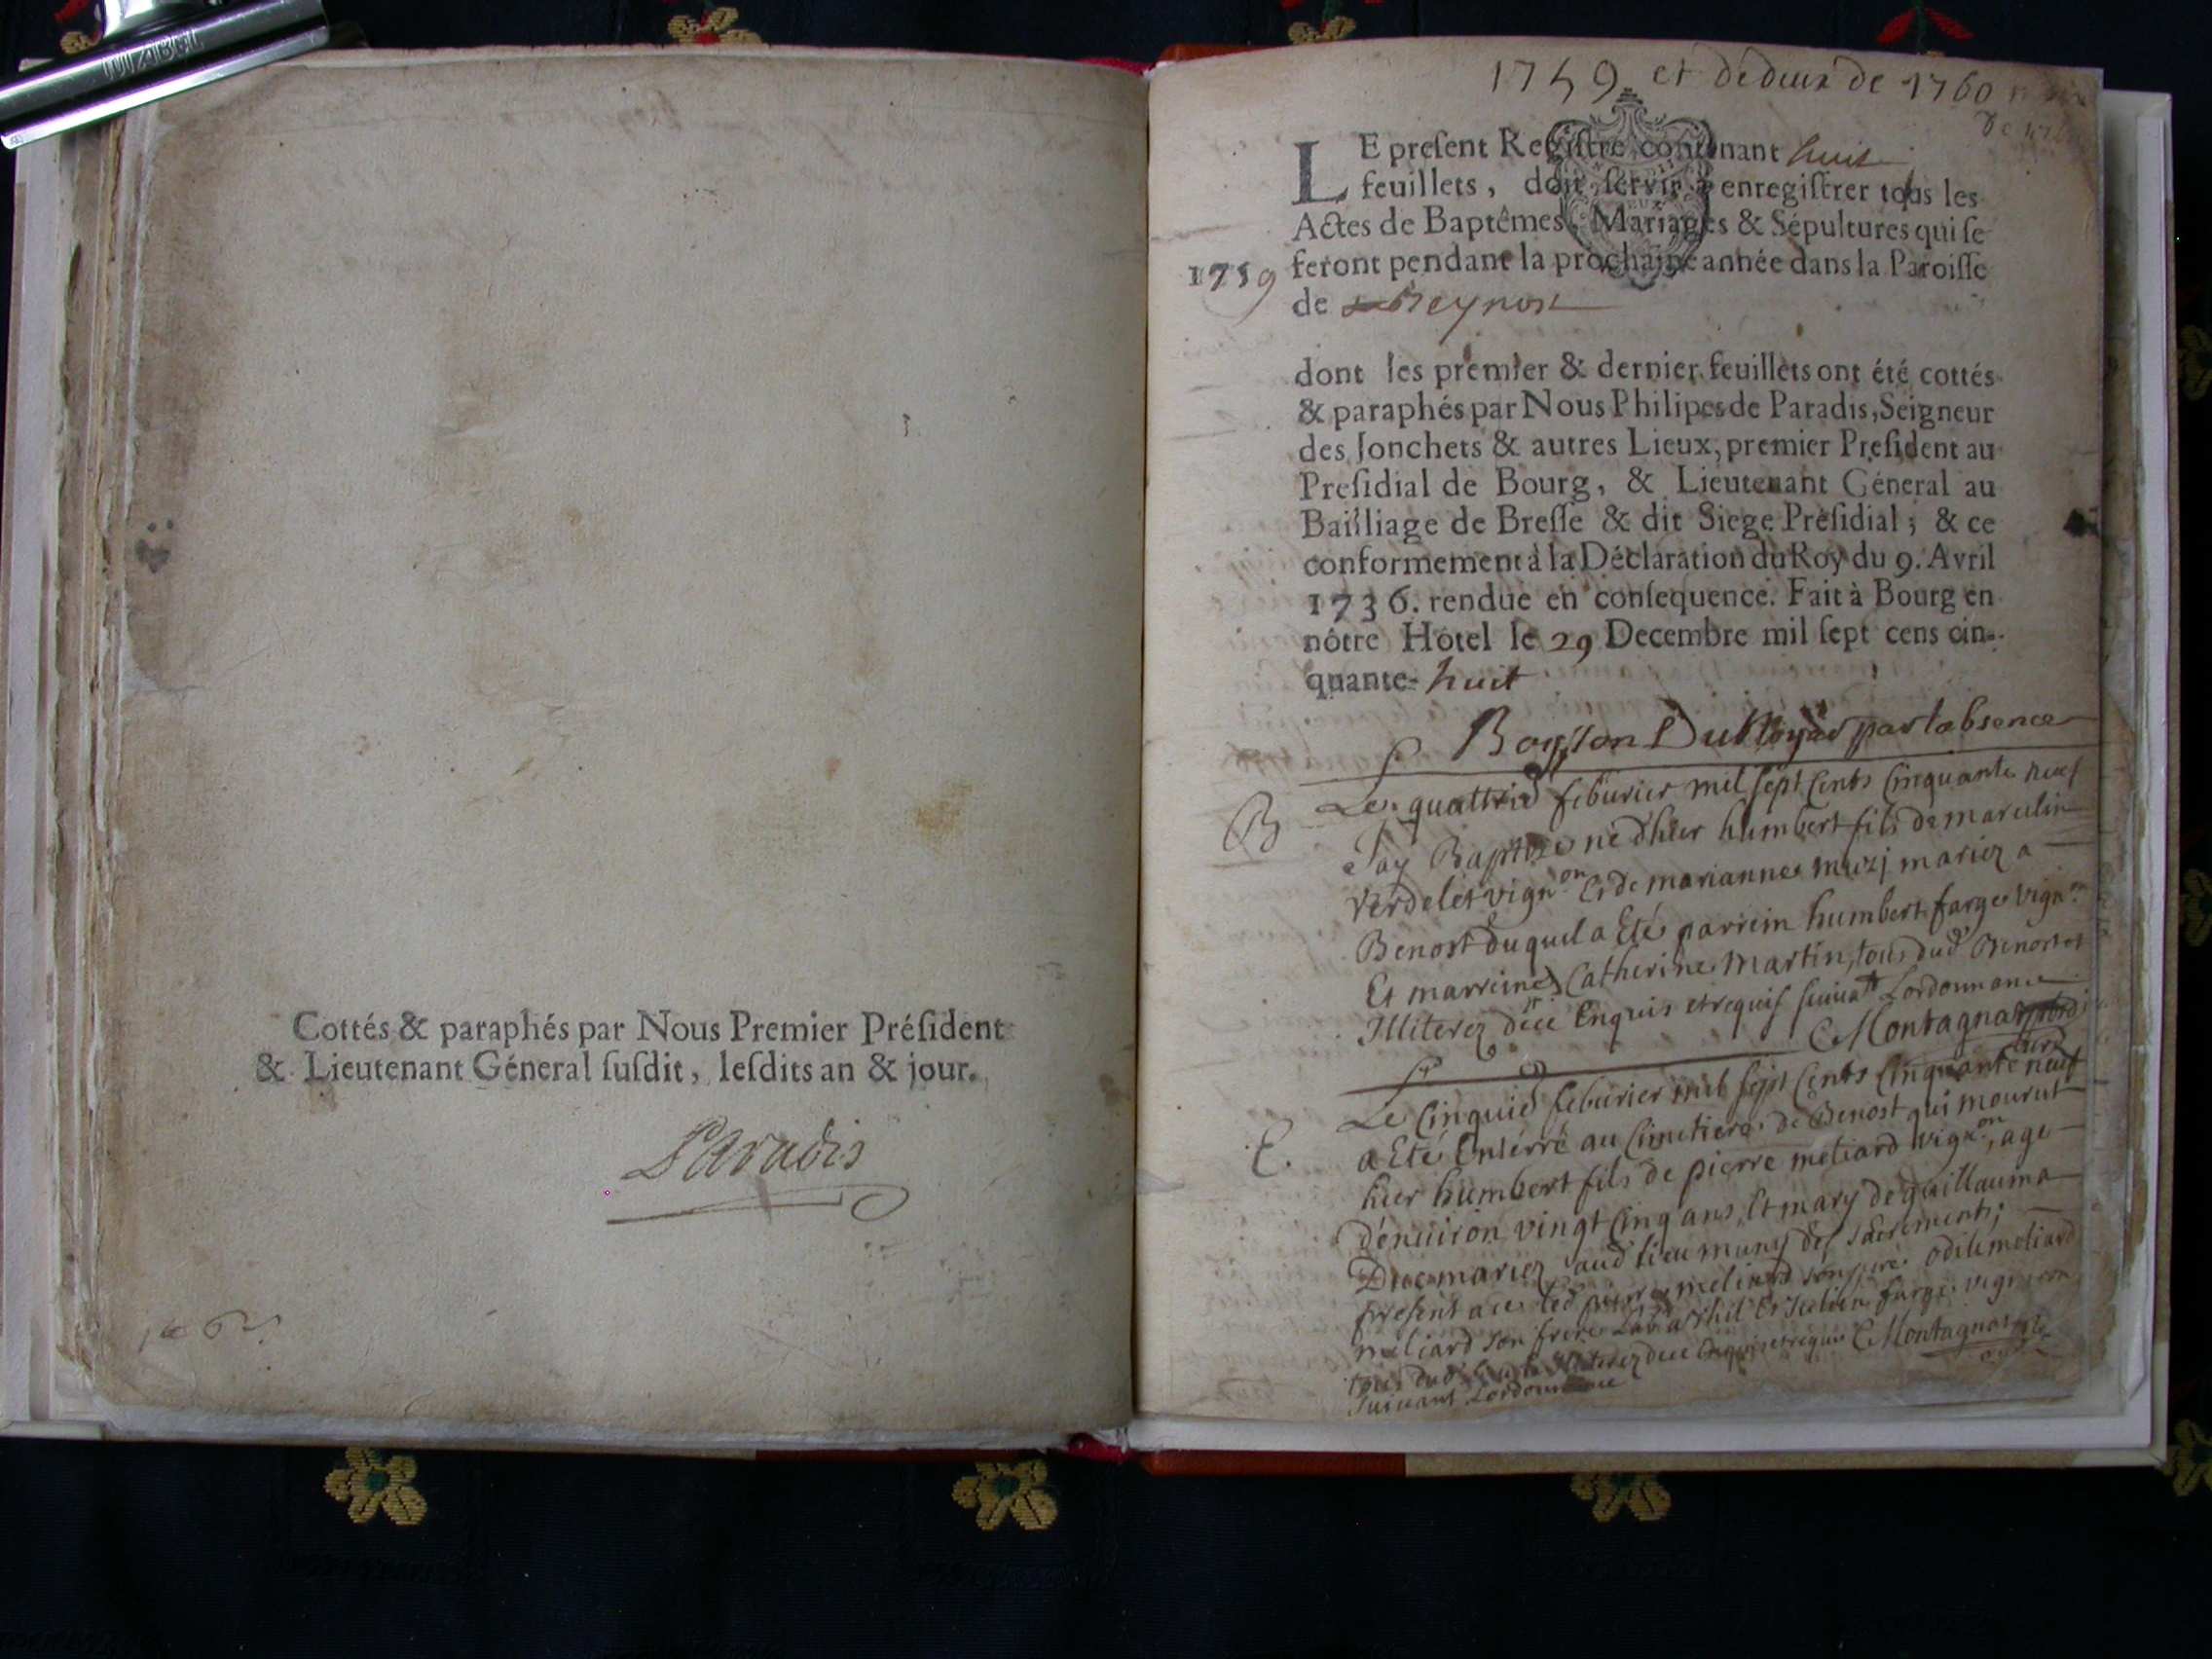 Cottés & paraphés par Nous Premier Préſident
& Lieutenant Géneral ſuſdit, leſdits an & jour.
Paradis
1759 et de deux de 1760
LE preſent Regiſtre contenant huit
feuillets, doit ſervir à enregiſtrer tous les
Actes de Baptêmes, Mariages & Sépultures qui ſe
1759 feront pendant la prochaine année dans la Paroiſſe
de Beynost
dont les premier & dernier feuillets ont été cottés
& paraphés par Nous Philipes de Paradis, Seigneur
des Jonchets & autres Lieux, premier Preſident au
Preſidial de Bourg, & Lieutenant Géneral au
Bailliage de Breſſe & dit Siege Préſidial ; & ce
conformement à la Déclaration du Roy du 9. Avril
1736. rendue en conſequence. Fait à Bourg en
nôtre Hôtel le 29 Decembre mil ſept cens cin-
quante- huit
par labsence
B Le quattrie febvrier mil sept cents cinquante neuf
Jay Baptizé né dhier humbert fils de marcelin
verdelet vign.on et de marianne mariez a
Benost duquel a Eté parrein humbert farge vign.on
Et marreine Catherine Martin, tous dud Benost et
Illiterez Enquis et requis suivat Lordonnance
Montagnat
E. Le Cinquie febvrier mil sept Cents Cinquante neuf
a Eté Enterré au Cimetiere de Benost qui mourut
hier humbert fils de pierre meliard vign.on, agé
denviron vingt Cinq ans, Et mary de guillauma
mariez aud lieu muny des sacrements;
present a ce led pierre meliard son pere odile meliard
meliard son frere farge vigneron
tous dud Illiterez Enquis et requis Montagnat
suivant Lordonnance